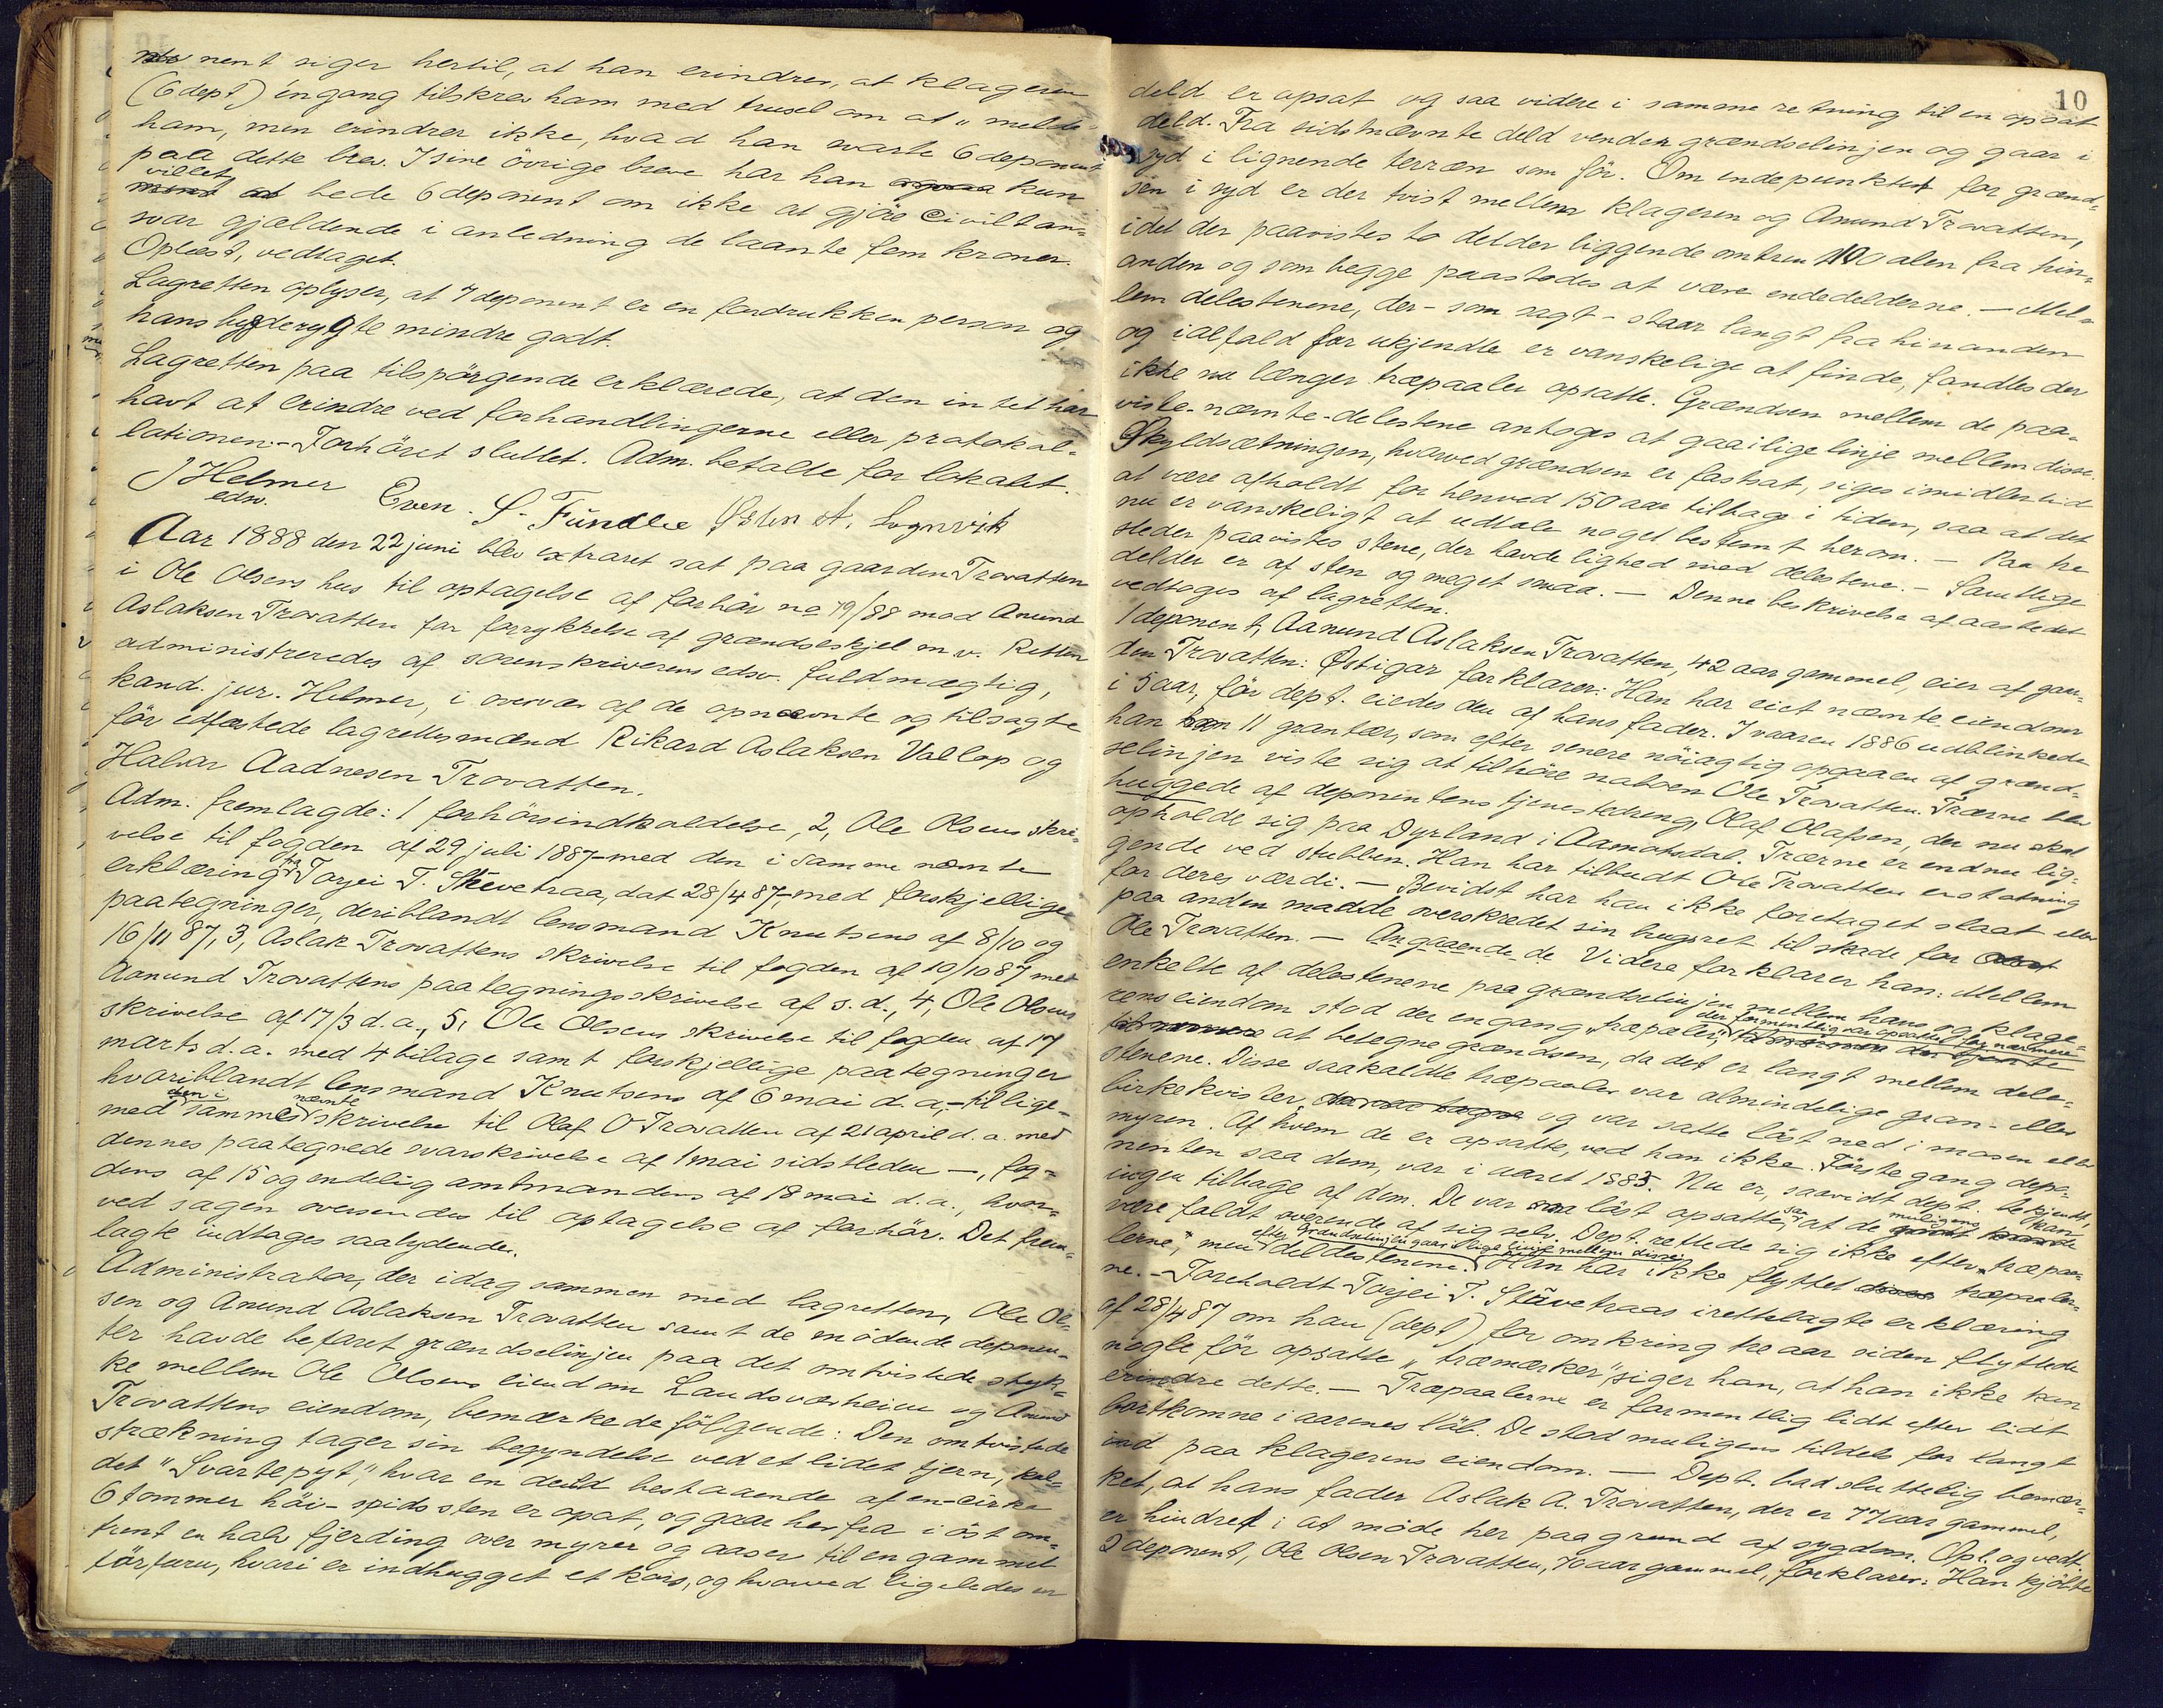 nent siger hertil, at han erindrer, at klageren
(6 dept) engang tilskrev ham med trusel om at "melde"
ham, men erindrer ikke, hvad han svarte 6 deponent
paa dette brev. I sine övrige breve har han ogsaa kun
villet
ment at bede 6 deponent om ikke at gjöre civilt an=
svar gjældende i anledning de laante fem kroner.
Oplæst, vedtaget.
Lagretten oplyser, at 7 deponent er en fordrukken person og
hans bygderygte mindre godt.
Lagretten paa tilspörgende erklærede, at den intet har
havt at erindre ved forhandlingerne eller protokol=
lationen. - Forhöret sluttet. Adm. betalte for lokalet.
J Helmer Even S. Fündlie Östen A. Lognvik
edsv.
Aar 1888 den 22 juni blev extraret sat paa gaarden Trovatten
i Ole Olsens hus til optagelse af forhör no 79/88 mod Anund
Aslaksen Trovatten for forrykkelse af grændseskjel m. v. Retten
administreredes af sorenskriverens edsv. fuldmægtig,
kand. jur. Helmer, i overvær af de opnævnte og tilsagte
för edfæstede lagrettesmænd Rikard Aslaksen Vallop og
Halvor Aadnesen Trovatten.
Adm. fremlagde: 1 forhörsindkaldelse, 2, Ole Olsens skri=
velse til fogden af 29 juli 1887 - med den i samme nævnte
erklæring fra Torjei T. Stävetraa, dat 28/4 87, - med forskjellige
paategninger, deriblandt lensmand Knutsens af 8/10 og
16/11 87, 3, Aslak Trovattens skrivelse til fogden af 10/10 87 med
Aanund Trovattens paategningsskrivelse af s. d., 4, Ole Olsens
skrivelse af 17/3 d. a., 5, Ole Olsens skrivelse til fogden af 17
marts d. a. med 4 bilage samt forskjellige paategninger
hvoriblandt lensmand Knutsens af 6 mai d. a., - tillige=
den i nævnte
med samme skrivelse til Olaf O Trovatten af 21 april d. a. med
dennes paategnede svarskrivelse af 1 mai sidstleden -, fog=
dens af 15 og endelig amtmandens af 18 mai d. a., hvor=
ved sagen oversendes til optagelse af forhör. Det frem=
lagte indtages saalydende.
Administrator, der idag sammen med lagretten, Ole Ol=
sen og Anund Aslaksen Trovatten samt de mödende deponen=
ter havde befaret grændselinjen paa det omtvistede styk=
ke mellem Ole Olsens eiendom Landsvæsheien og Anund
Trovattens eiendom, bemærkede fölgende: Den omtvistede
strækning tager sin begyndelse ved et lidet tjern, kal=
det "Svartepyt", hvor en deild bestaaende af en - cirka
6 tommer höi - spids sten er opsat, og gaar herfra i öst om=
trent en halv fjerding over myrer og aaser til en gammel
törfuru, hvori er indhugget et kors, og hvorved ligeledes en
10
deld er opsat og saa videre i samme retning til en opsat
deld. Fra sidstnævnte deld vender grændselinjen og gaar i
syd i lignende terræn som för. Om endepunktet for grænd=
sen i syd er der tvist mellem klageren og Anund Trovatten,
idet der paavistes to delder liggende omtrent 100 alen fra hin=
anden og som begge paastodes at være endedelderne. - Mel=
lem delestenene, der - som sagt - staar langt fra hinanden
og ialfald for ukjendte er vanskelige at finde, fandtes der
ikke nu længer træpaaler opsatte. Grændsen mellem de paa=
viste - nævnte - delestene antoges at gaa i lige linje mellem disse.
Skyldsætningen, hvorved grændsen er fastsat, siges imidlertid
at være afholdt for henved 150 aar tilbage i tiden, saa at det
nu er vanskeligt at udtale noget bestemt herom. - Paa tre
steder paavistes stene, der havde lighed med delestene. - Samtlige
delder er af sten og meget smaa. - Denne beskrivelse af aastedet
vedtoges af lagretten.
1 deponent, Aanund Aslaksen Trovatten, 42 aar gammel, eier af gaar=
den Trovatten: Östigar forklarer: Han har eiet nævnte eiendom
i 5 aar, för dept. eiedes den af hans fader. I vaaren 1886 udblinkede
han 11 grantær, som efter senere nöiagtig opgaaen af grænd=
selinjen viste sig at tilhöre naboen Ole Trovatten. Trærne blev
huggede af deponentens tjenestedreng, Olaf Olafsen, der nu skal
opholde sig paa Dyrland i Aamotsdal. Trærne er endnu lig=
gende ved stubben. Han har tilbudt Ole Trovatten erstatning
for deres værdi. - Bevidst har han ikke foretaget slaat eller
paa anden maade overskredet sin brugsret til skade for
Ole Trovatten. - Angaaende de Videre forklarer han: Mellem
enkelte af delestenene paa grændselinjen mellem hans og klage=
rens eiendom stod der engang "træpæler", der formentlig var opsatte for nærmere
at betegne grændsen, da det er langt mellem dele=
stenene. Disse saakaldte træpaaler var almindelige gran- eller
birkekvister, og var satte löst ned i mosen eller
myren. Af hvem de er opsatte, ved han ikke. Förste gang depo=
nenten saa dem, var i aaret 1885. Nu er, saavidt dept. bekjendt,
ingen tilbage af dem. De var löst opsatte, saa at de muligens kan
være faldt overende af sig selv. Dept. rettede sig ikke efter træpaa=
lerne, men efter deldestenene. Grændselinjen gaar i lige linje mellem disse. Han har ikke flyttet træpaaler=
ne. - Foreholdt Torjei T. Stävetraas irettelagte erklæring
af 28/4 87 om han (dept) for omkring tre aar siden flyttede
nogle för opsatte "træmærker" siger han, at han ikke kan
erindre dette. - Træpaalerne er formentlig lidt efter lidt
bortkomne i aarenes löb. De stod muligens tildels for langt
ind paa klagerens eiendom. - Dept. bad sluttelig bemær=
ket, at hans fader Aslak A. Trovatten, der er 77 aar gammel,
er hindret i at möde her paa grund af sygdom. Opl. og vedt.
2 deponent, Ole Olsen Trovatten, 70 aar gammel, forklarer: Han kjöbte